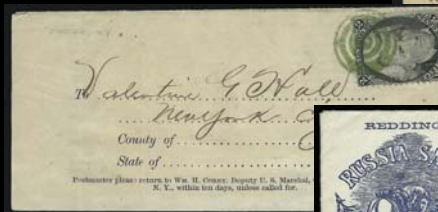 To Valentine G Hall
New York
County of
State of
Postmaster please return to Wm. H. Deputy U. S. Marshal,
N. Y., within ten days, unless called for.
REDDING
RUSSIA SA